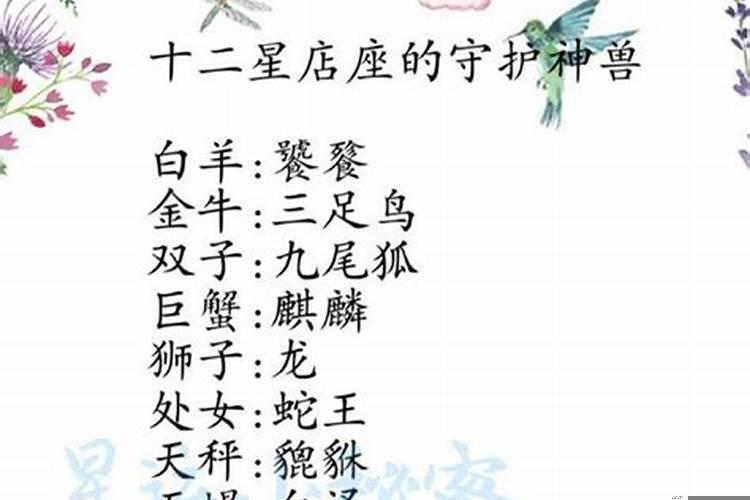 十二星店座的守护神兽
白羊:饕餮
金牛:三足鸟
双子:九尾狐
巨蟹:麒麟
狮子:龙
处女:蛇王
天秤:貔貅